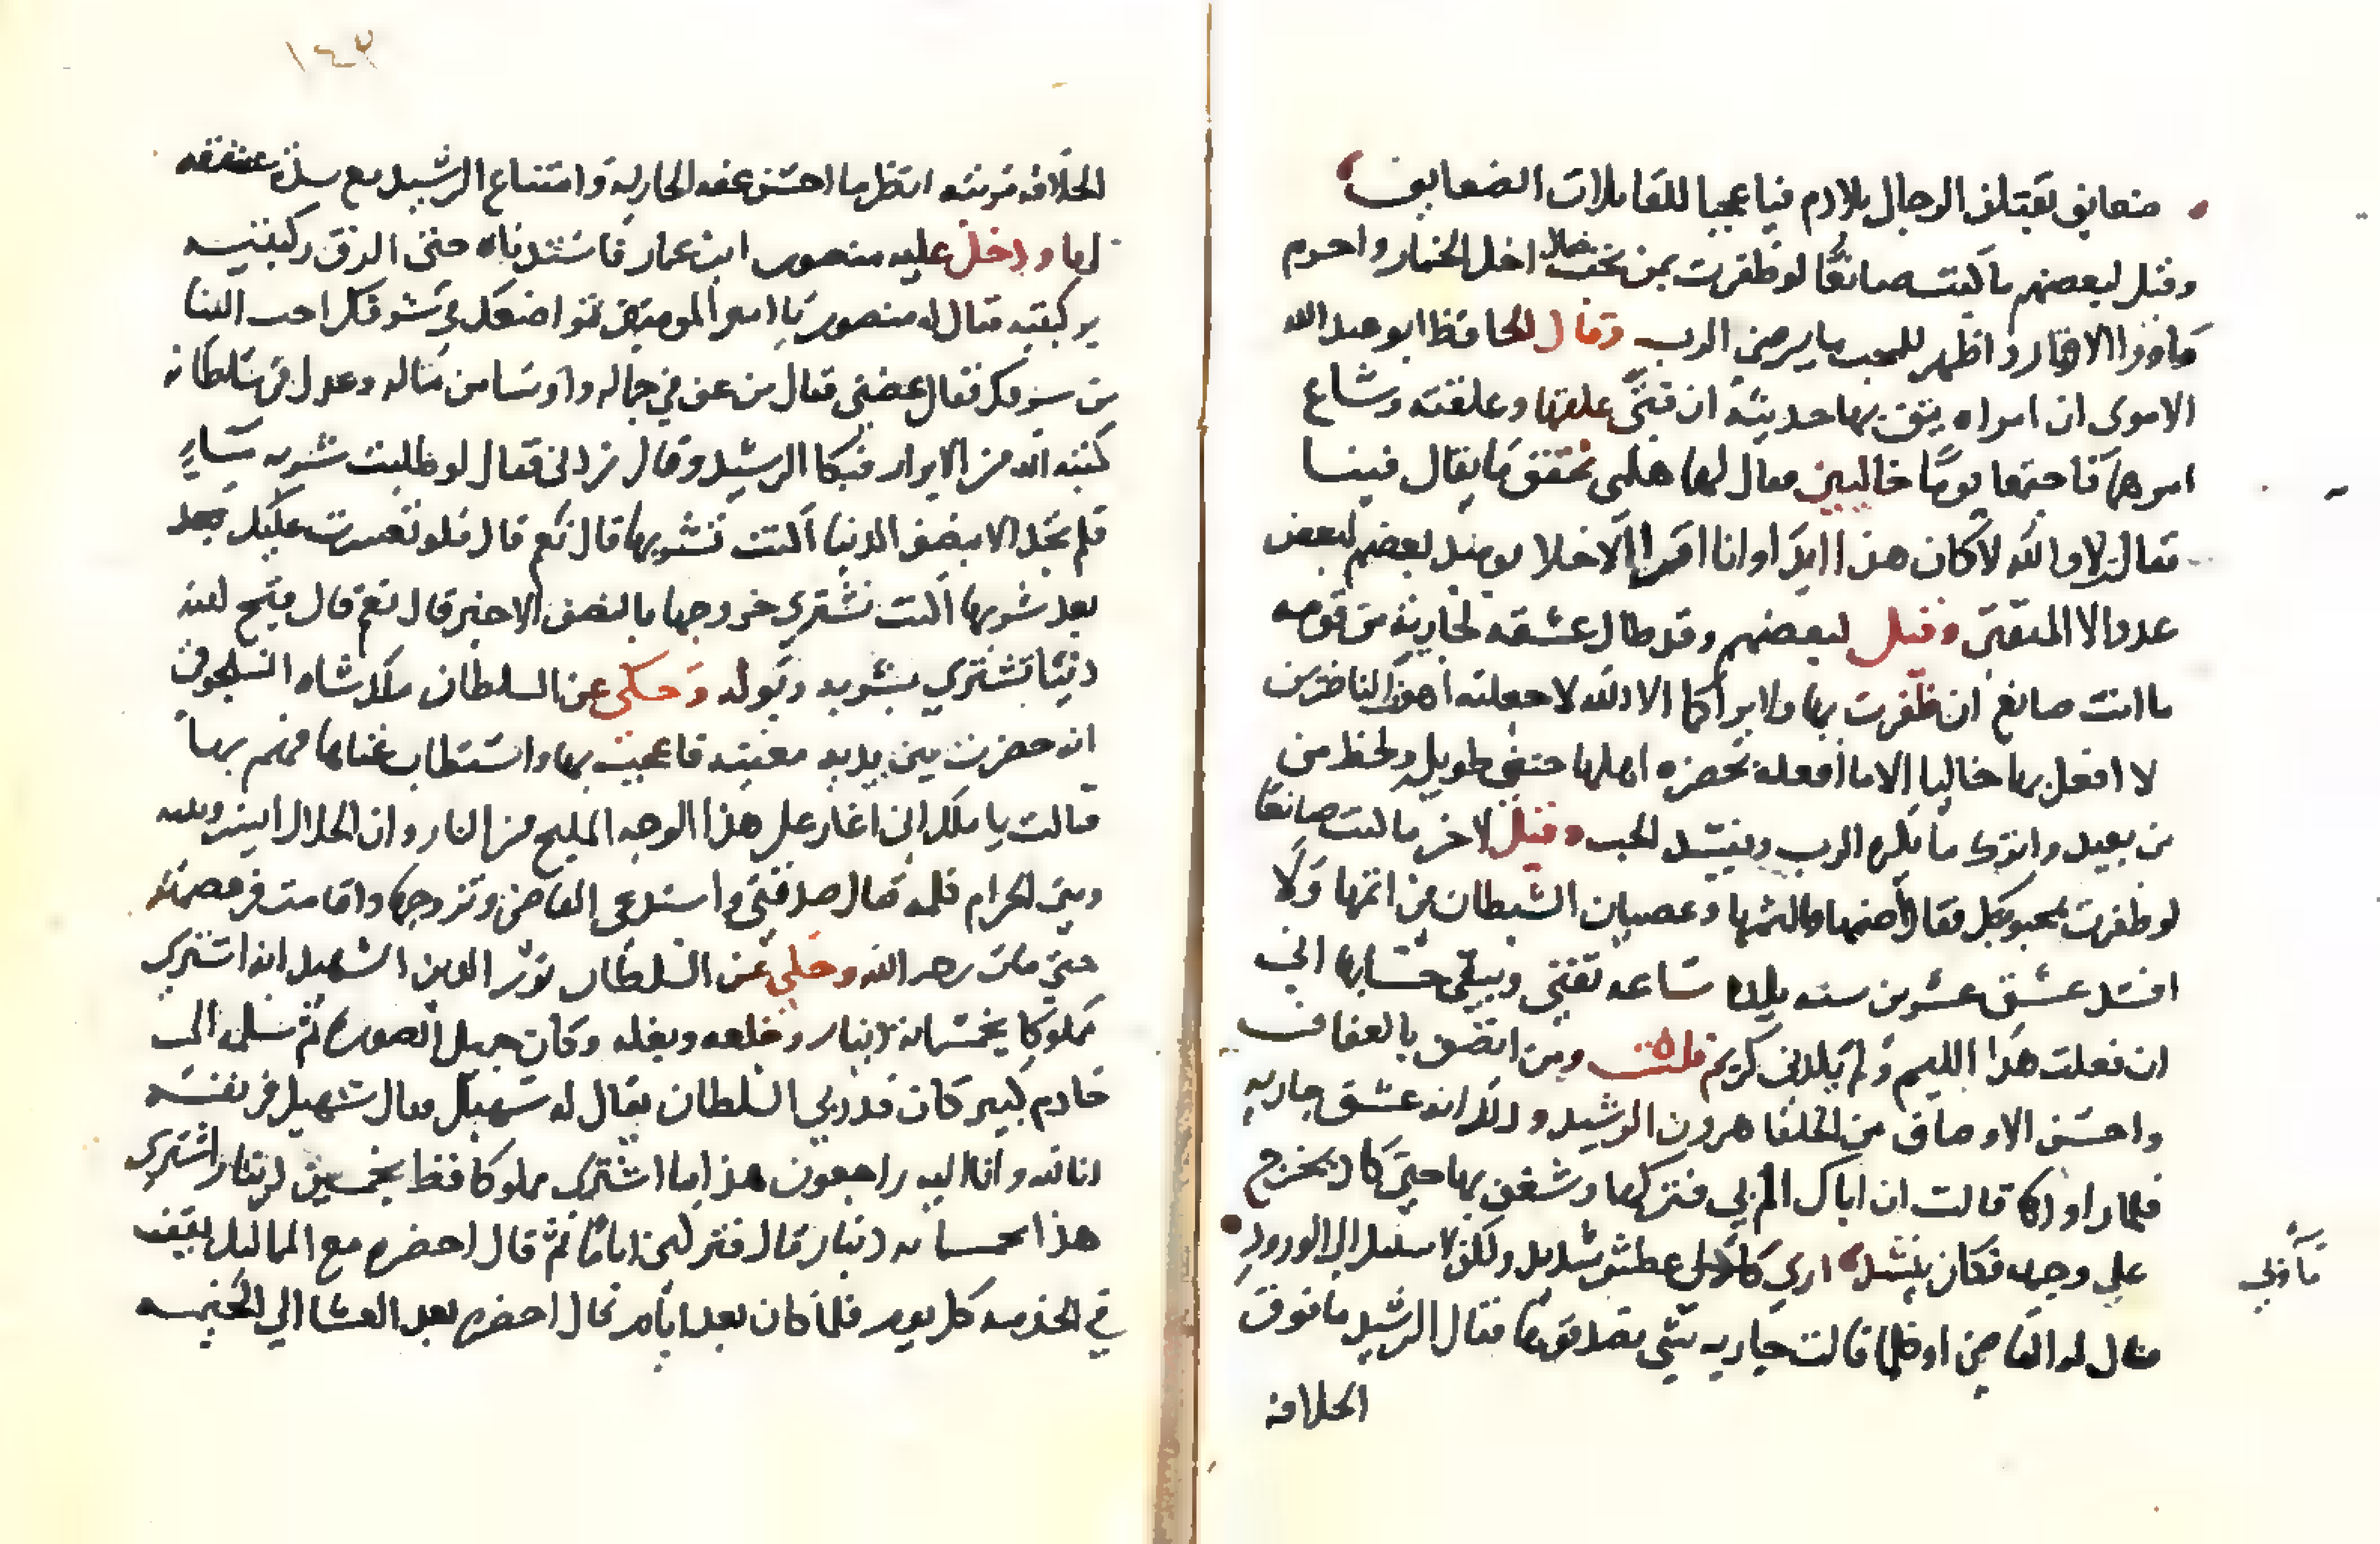 ضعايف يقتلن الرجال بلا دم فيا عجبا للقاتلات الضعايف
وقيل لبعضهم ما كنت صانعًا لو ظفرت بمن تحب قال احل الخمار واحرم
ما ورا الازار واظهر للحب ما يرضى الرب وقال الحافظ ابو عبد الله
الاموى ان امراه يثق بها حديثه ان فتى علقها وعلقته وشاع
امرهما فاجتمعا يومًا خاليين فقال لها هلمى نحقق ما يقال فينا
فقالت لا والله لا كان هذا ابدا وانا اقرا الاخلا يوميذ بعضهم لبعض
عدو الا المتقين وقيل لبعضهم وقد طال عشقه لجاريه من قومه
ما انت صانع ان ظفرت بها ولا يراكما الا الله لا جعلته اهون الناظرين
لا افعل بها خاليا الا ما افعله بحضره اهلها حنين طويل ولحظ من
من بعيد واترك ما يكره الرب ويفسد الحب وقيل لاخر ما كنت صانعًا
لو ظفرت بمحبوبك فقال اضمها والثمها وعصيان الشيطان من اثمها ولا
افسد عشق عشرين سنه بلذة ساعه تفنى ويبقى حسابها انى
ان فعلت هذا لليم ولم يلدنى كريم قلت ومن اتصف بالعفاف
واحسن الاوصاف من الخلفا هرون الرشيد وذلك انه عشق جاريه
فلما راودها قالت ان اباك الم بي فتركها وشغف بها حتى كاد يخرج
على وجهه فكان ينشد ارى ما وبي عطش شديد ولكن لا سبيل الى الورود
ما وبي
فقال له القاضى او كلما قالت جاريه شى تصدقونها فقال الرشيد ما فوق
الخلافه
١٤٣
الخلافه مرتبه انظر ما احسن عفه الجاريه وامتناع الرشيد مع شدة عشقه
لها ودخل عليه منصور ابن عمار فاستدناه حتى الزق ركبتيه
بركبتيه فقال له منصور يا امير المومنين تواضعك في شرفك احب الينا
من شرفك فقال عظنى فقال من عف في جماله وواسا من ماله وعدل فى سلطانه
كتبه الله من الابرار فبكا الرشيد وقال زدنى فقال لو طلبت شربه ماء
فلم تجد الا بنصف الدنيا اكنت تشتريها قال نعم قال فلو تعسرت عليك بعد
بعد شربها اكنت تشتري خروجها بالنصف الاخير قال نعم قال قبح الله
دنيا تشترى بشربه وبوله وحكى عن السلطان ملك شاه السلجوقى
انه حضرت بين يديه مغنيه فاعجب بها واستطاب غناها فهم بها
فقالت يا ملك انى اغار على هذا الوجه المليح من النار وان الحلال ايسر وبينه
وبين الحرام كلمه فقال صدقتى واستدعى القاضى وتزوجها واقامت فى عصمته
حتى مات رحمه الله وحكي عن السلطان نور الدين الشهيد انه اشترى
مملوكا بخمسمايه دينار وخلعه وبغله وكان جميل الصوره ثم سلمه الى
خادم كبير كان قد ربي السلطان يقال له سهيل فقال سهيل فى نفسه
انا لله وانا اليه راجعون هذا ما اشترى مملوكا قط بخمسين دينار اشترى
هذا بخمسمايه دينار قال فتركنى اياما ثم قال احضره مع المماليك يقف
في الخدمه كل يوم فلما كان بعد ايام قال احضره بعد العشا الي الخيمه